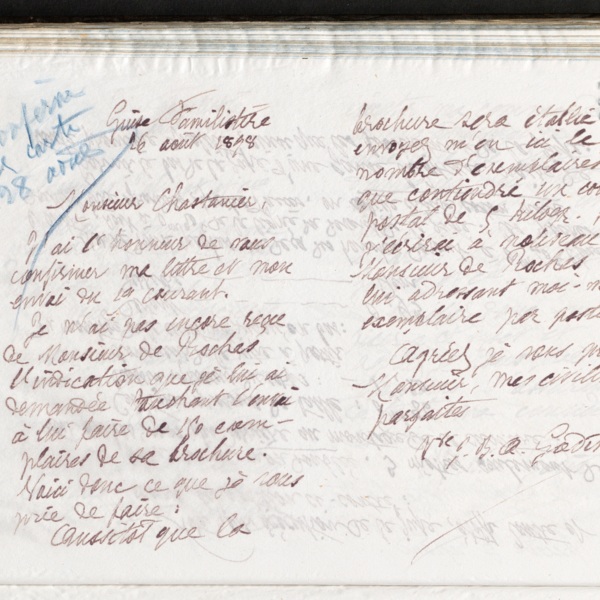 confirmé
carte
28 août
Guise Familistère
26 août 1898
Monsieur Chastanier,
J'ai l'honneur de vous
confirmer ma lettre et mon
envoi du 19 courant.
Je n'ai pas encore reçu
de Monsieur de Rochas
l'indication que je lui ai
demandée touchant l'envoi
à lui faire de 150 exem-
plaires de sa brochure.
Voici donc ce que je vous
prie de faire :
Aussitôt que la
brochure sera établie
envoyez m'en ici le
nombre d'exemplaires
que contiendra un co
postal de 5 kilos.
J'écrirai à nouveau
Monsieur de Rochas
lui adressant moi-m
exemplaire par poste
Agréez je vous p
Monsieur, mes civili
parfaites
Vve. J. B. A. Godin